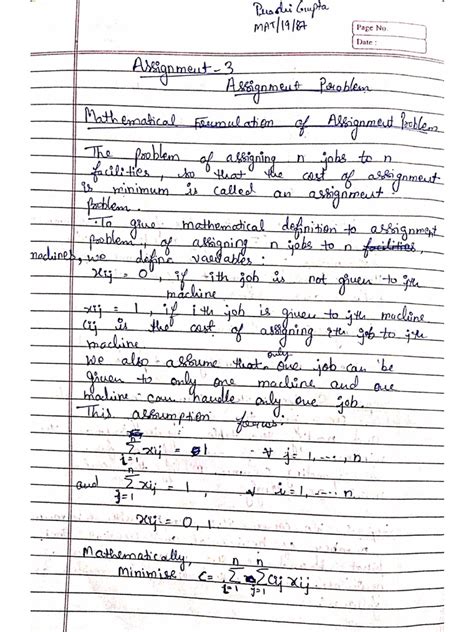 Gupta
MAT/19/87
Page No.
Date :
Assignment - 3
Assignment Problem
Mathematical Formulation of Assignment Problem
The problem of assigning n jobs to n
facilities, so that the cost of assignment
is minimum is called an assignment
problem.
To give mathematical definition to assignment
problem, of assigning n jobs to n facilities,
machines, we define variables:
xij = 0, if ith job is not given to jth
machine
xij = 1, if ith job is given to jth machine
Cij is the cost of assigning ith job to jth
machine
We also assume that only one job can be
given to only one machine and one
machine can handle only one job.
This assumption forces:
n∑i=1 xij = 1 ∀ j = 1, ..., n
and n∑j=1 xij = 1, ∀ i = 1, ... n
xij = 0, 1
Mathematically,
Minimise C = n∑i=1 n∑j=1 Cij xij